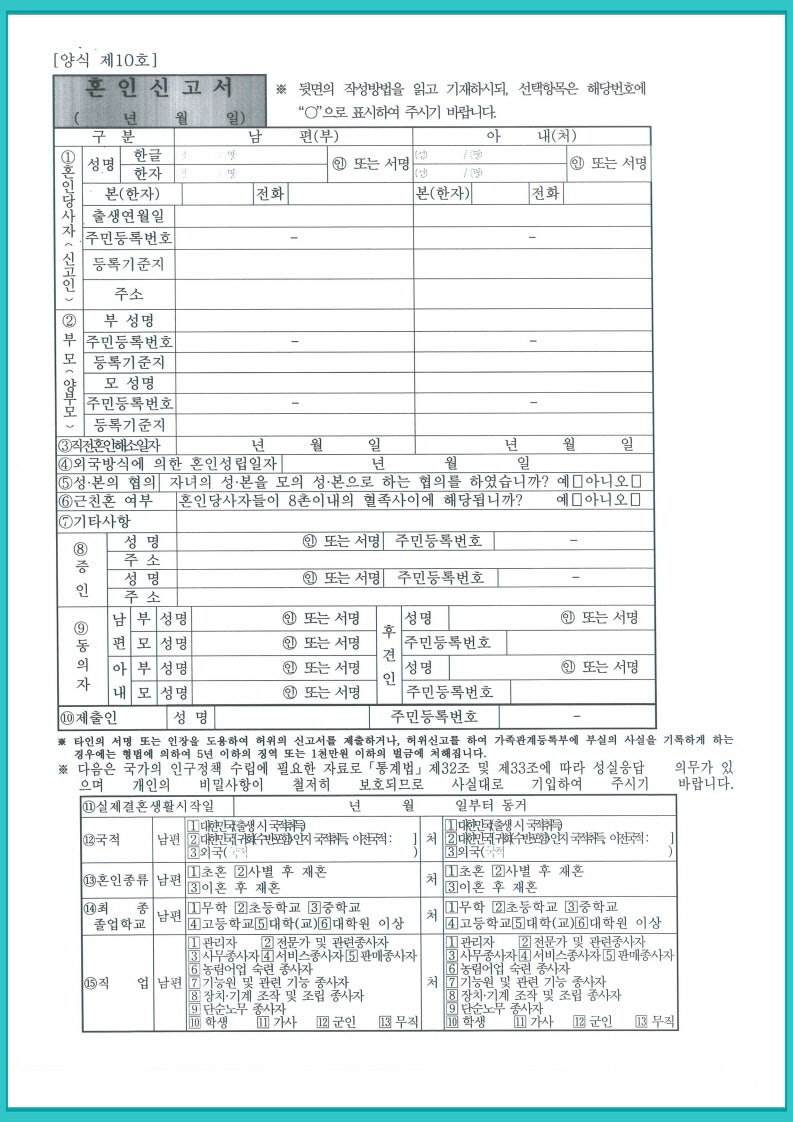 [양식 제10호]
혼 인 신 고 서
( 년 월 일)
※ 뒷면의 작성방법을 읽고 기재하시되, 선택항목은 해당번호에
“○”으로 표시하여 주시기 바랍니다.
구 분 남 편(부) 아 내(처)
①혼인당사자(신고인)
성명 한글 / 명 ㊞ 또는 서명 (성) / (명) ㊞ 또는 서명
한자 / 명 (성) / (명)
본(한자) 전화 본(한자) 전화
출생연월일
주민등록번호 － －
등록기준지
주소
②부모(양부모)
부 성명
주민등록번호 － －
등록기준지
모 성명
주민등록번호 － －
등록기준지
③직전혼인해소일자 년 월 일 년 월 일
④외국방식에 의한 혼인성립일자 년 월 일
⑤성·본의 협의 자녀의 성·본을 모의 성·본으로 하는 협의를 하였습니까? 예□아니오□
⑥근친혼 여부 혼인당사자들이 8촌이내의 혈족사이에 해당됩니까? 예□아니오□
⑦기타사항
⑧증인
성 명 ㊞ 또는 서명 주민등록번호 －
주 소
성 명 ㊞ 또는 서명 주민등록번호 －
주 소
⑨동의자
남편 부 성명 ㊞ 또는 서명 후견인 성명 ㊞ 또는 서명
모 성명 ㊞ 또는 서명 주민등록번호
아내 부 성명 ㊞ 또는 서명 성명 ㊞ 또는 서명
모 성명 ㊞ 또는 서명 주민등록번호
⑩제출인 성 명 주민등록번호 －
※ 타인의 서명 또는 인장을 도용하여 허위의 신고서를 제출하거나, 허위신고를 하여 가족관계등록부에 부실의 사실을 기록하게 하는
경우에는 형법에 의하여 5년 이하의 징역 또는 1천만원 이하의 벌금에 처해집니다.
※ 다음은 국가의 인구정책 수립에 필요한 자료로「통계법」제32조 및 제33조에 따라 성실응답 의무가 있
으며 개인의 비밀사항이 철저히 보호되므로 사실대로 기입하여 주시기 바랍니다.
⑪실제결혼생활시작일 년 월 일부터 동거
⑫국적 남편 처
1대한민국(출생시 국적취득) 1대한민국(출생시 국적취득)
2대한민국[귀화(수반포함)·인지 국적취득, 이전국적: ] 2대한민국[귀화(수반포함)·인지 국적취득, 이전국적: ]
3외국(국적 ) 3외국(국적 )
⑬혼인종류 남편 처
1초혼 2사별 후 재혼 1초혼 2사별 후 재혼
3이혼 후 재혼 3이혼 후 재혼
⑭최 종 졸업학교 남편 처
1무학 2초등학교 3중학교 1무학 2초등학교 3중학교
4고등학교5대학(교)6대학원 이상 4고등학교5대학(교)6대학원 이상
⑮직 업 남편 처
1관리자 2전문가 및 관련종사자 1관리자 2전문가 및 관련종사자
3사무종사자4서비스종사자5판매종사자 3사무종사자4서비스종사자5판매종사자
6농림어업 숙련 종사자 6농림어업 숙련 종사자
7기능원 및 관련 기능 종사자 7기능원 및 관련 기능 종사자
8장치·기계 조작 및 조립 종사자 8장치·기계 조작 및 조립 종사자
9단순노무 종사자 9단순노무 종사자
10학생 11가사 12군인 13무직 10학생 11가사 12군인 13무직